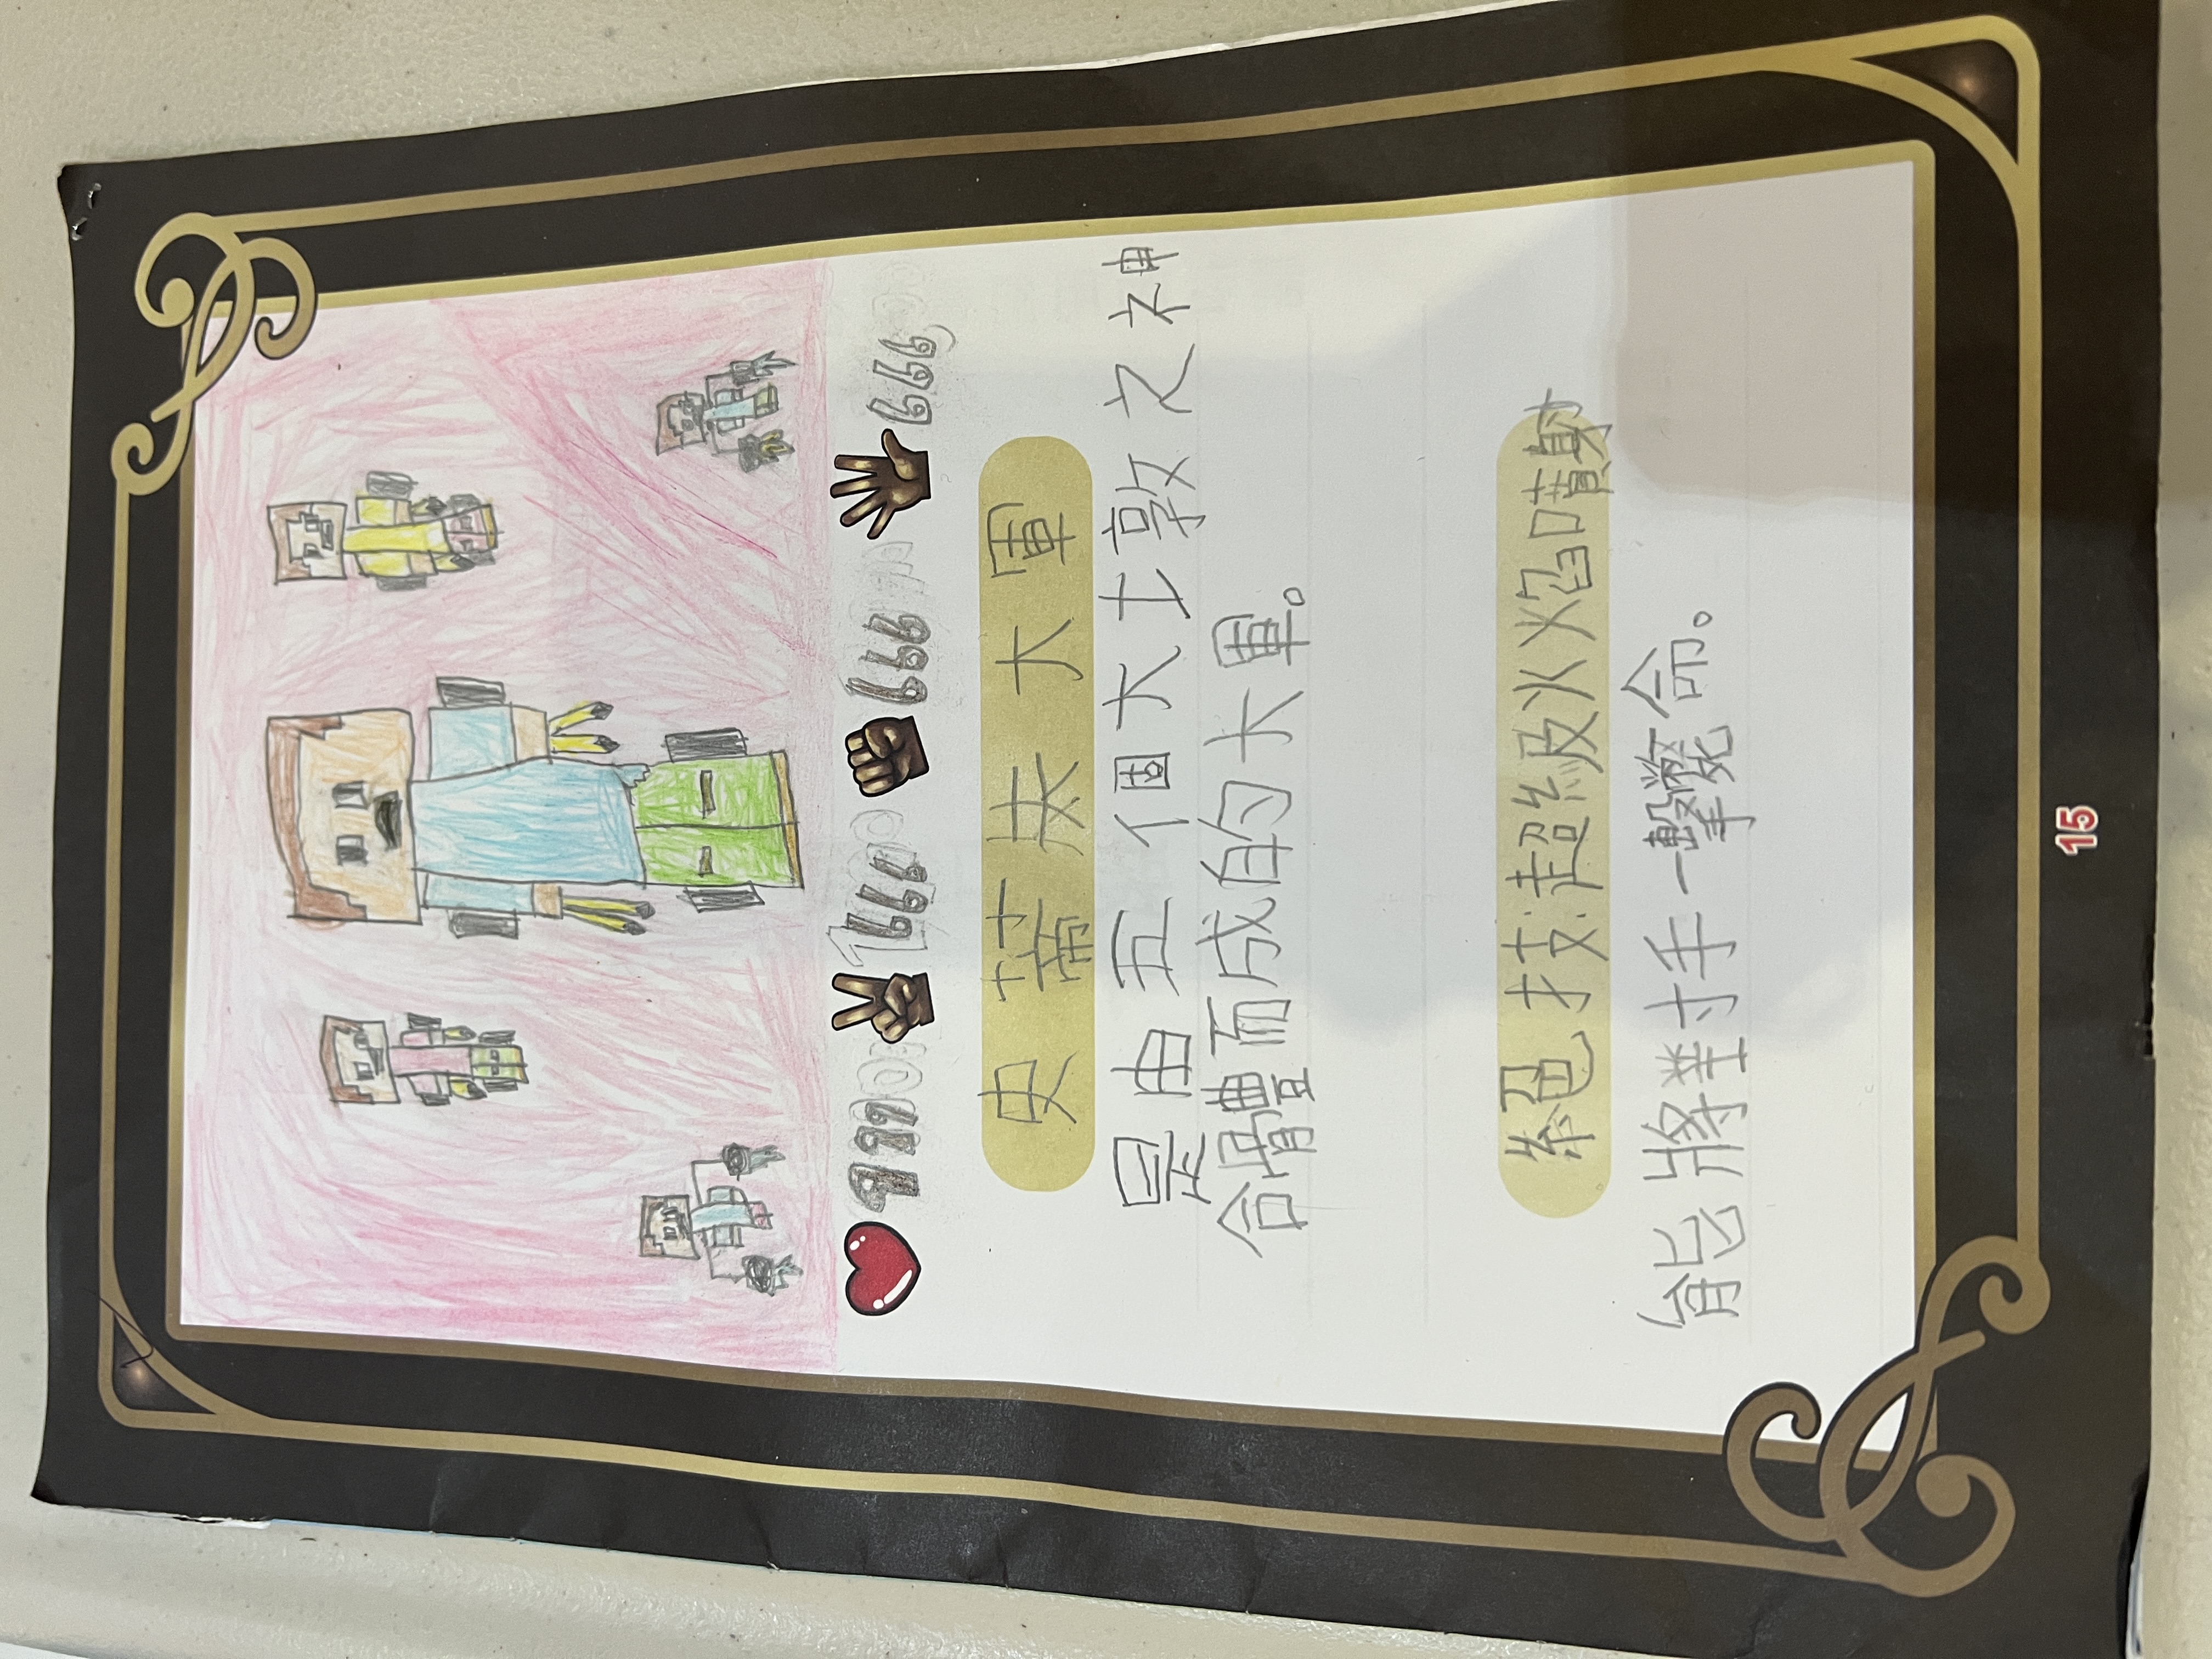 9999 999 999 999
史蒂夫大軍
是由五個大士敦之神
合體而成的大軍。
絕技:超級火焰噴射
能將對手一擊斃命。
15